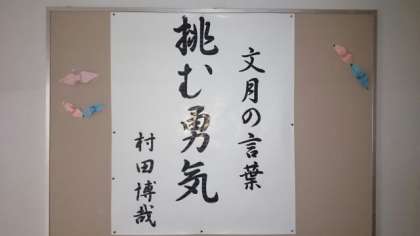 文月の言葉
挑む勇気
村田博哉